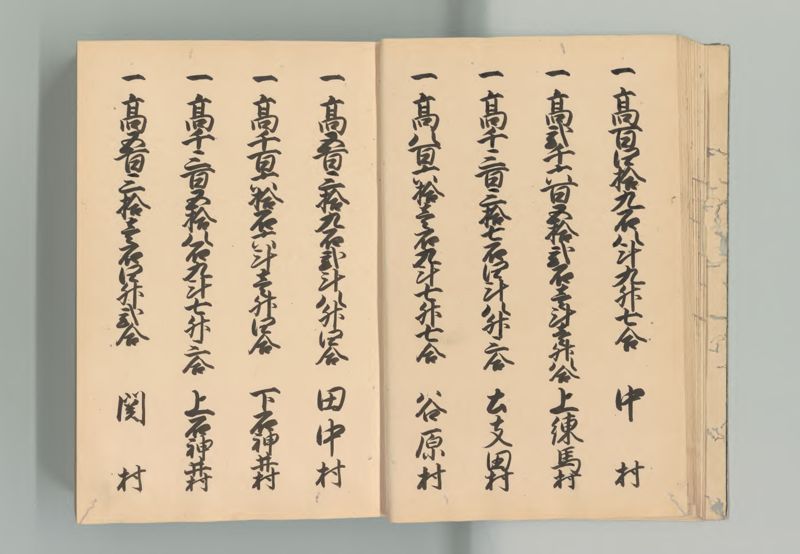 一 高百四拾九石八斗九升七合 中村
一 高弐千六百五拾弐石壱斗壱升八合 上練馬村
一 高千三百三拾七石四斗八升三合 土支田村
一 高八百六拾壱石九斗七升七合 谷原村
一 高五百三拾九石弐斗八升四合 田中村
一 高千百六拾石六斗壱升四合 下石神井村
一 高千三百五拾八石九斗七升三合 上石神井村
一 高五百三拾壱石四升弐合 関村